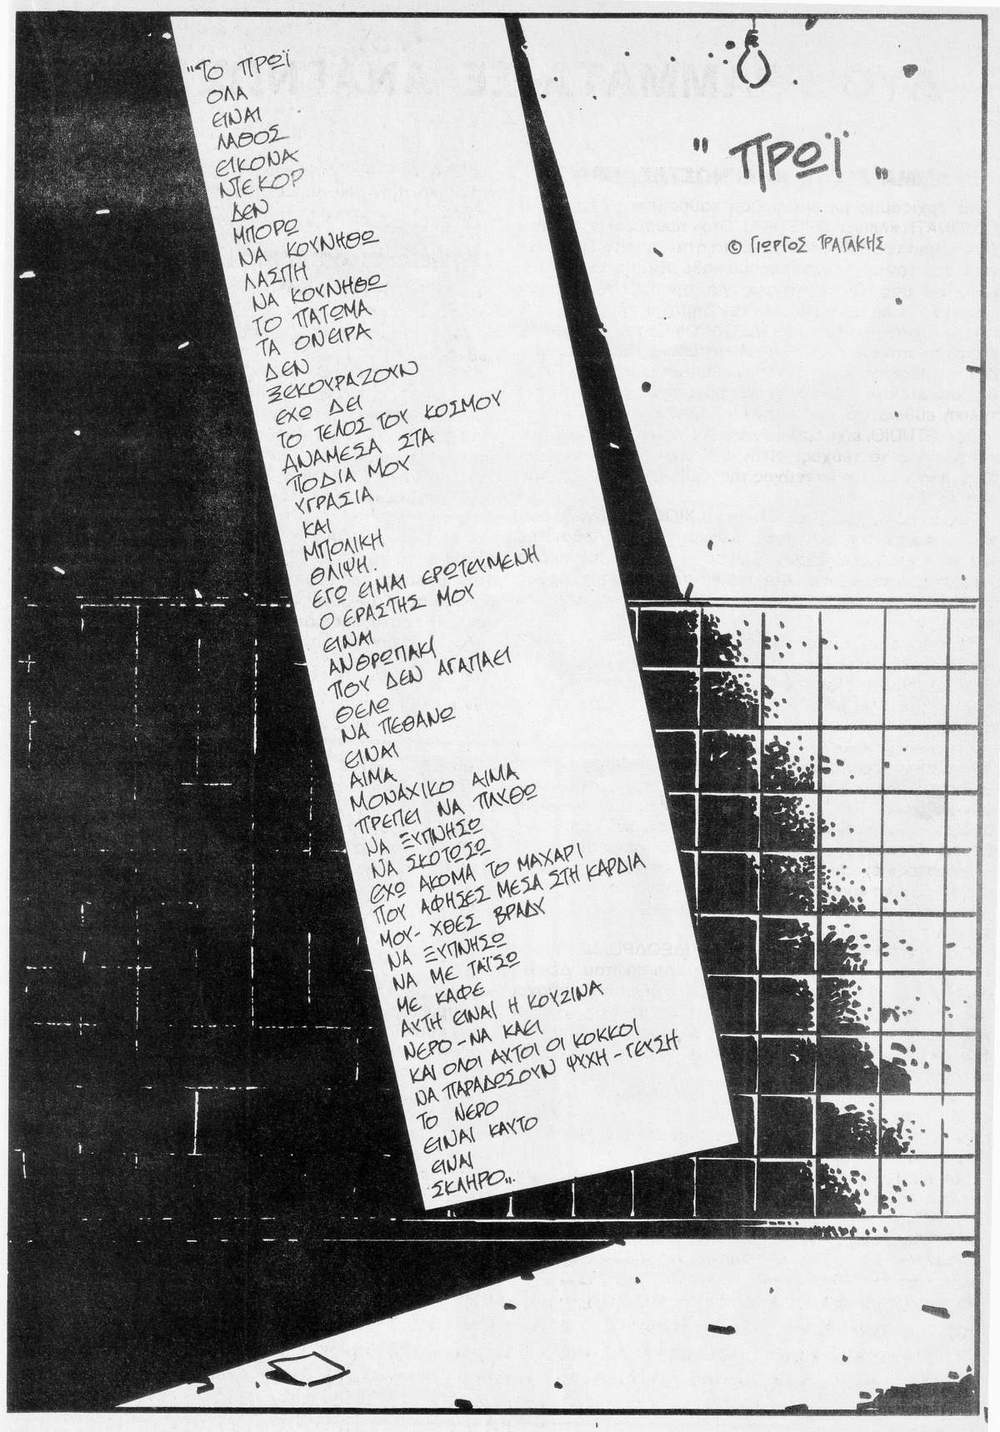 "ΤΟ ΠΡΩΪ
ΟΛΑ
ΕΙΝΑΙ
ΛΑΘΟΣ
ΕΙΚΟΝΑ
ΝΤΕΚΟΡ
ΔΕΝ
ΜΠΟΡΩ
ΝΑ ΚΟΥΝΗΘΩ
ΛΑΣΠΗ
ΝΑ ΚΟΥΝΗΘΩ
ΤΟ ΠΑΤΩΜΑ
ΤΑ ΟΝΕΙΡΑ
ΔΕΝ
ΞΕΚΟΥΡΑΖΟΥΝ
ΕΧΩ ΔΕΙ
ΤΟ ΤΕΛΟΣ ΤΟΥ ΚΟΣΜΟΥ
ΑΝΑΜΕΣΑ ΣΤΑ
ΠΟΔΙΑ ΜΟΥ
ΥΓΡΑΣΙΑ
ΚΑΙ
ΜΠΟΛΙΚΗ
ΘΛΙΨΗ.
ΕΓΩ ΕΙΜΑΙ ΕΡΩΤΕΥΜΕΝΗ
Ο ΕΡΑΣΤΗΣ ΜΟΥ
ΕΙΝΑΙ
ΑΝΘΡΩΠΑΚΙ
ΠΟΥ ΔΕΝ ΑΓΑΠΑΕΙ
ΘΕΛΩ
ΝΑ ΠΕΘΑΝΩ
ΕΙΝΑΙ
ΑΙΜΑ
ΜΟΝΑΧΙΚΟ ΑΙΜΑ
ΠΡΕΠΕΙ ΝΑ ΠΛΥΘΩ
ΝΑ ΞΥΠΝΗΣΩ
ΝΑ ΣΚΟΤΩΣΩ
ΕΧΩ ΑΚΟΜΑ ΤΟ ΜΑΧΑΡΙ
ΠΟΥ ΑΦΗΣΕΣ ΜΕΣΑ ΣΤΗ ΚΑΡΔΙΑ
ΜΟΥ - ΧΘΕΣ ΒΡΑΔΥ
ΝΑ ΞΥΠΝΗΣΩ
ΝΑ ΜΕ ΤΑΪΣΩ
ΜΕ ΚΑΦΕ
ΑΥΤΗ ΕΙΝΑΙ Η ΚΟΥΖΙΝΑ
ΝΕΡΟ - ΝΑ ΚΑΕΙ
ΚΑΙ ΟΛΟΙ ΑΥΤΟΙ ΟΙ ΚΟΚΚΟΙ
ΝΑ ΠΑΡΑΔΩΣΟΥΝ ΨΥΧΗ - ΓΕΥΣΗ
ΤΟ ΝΕΡΟ
ΕΙΝΑΙ ΚΑΥΤΟ
ΕΙΝΑΙ
ΣΚΛΗΡΟ„.
" ΠΡΩΪ „
© ΓΙΩΡΓΟΣ ΤΡΑΓΑΚΗΣ